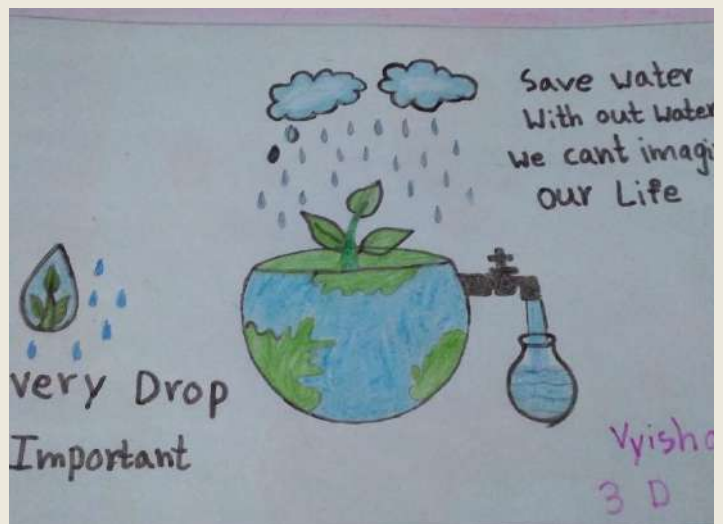 Save water
With out water
we cant imagi
our Life
very Drop
Important
Vyisho
3 D